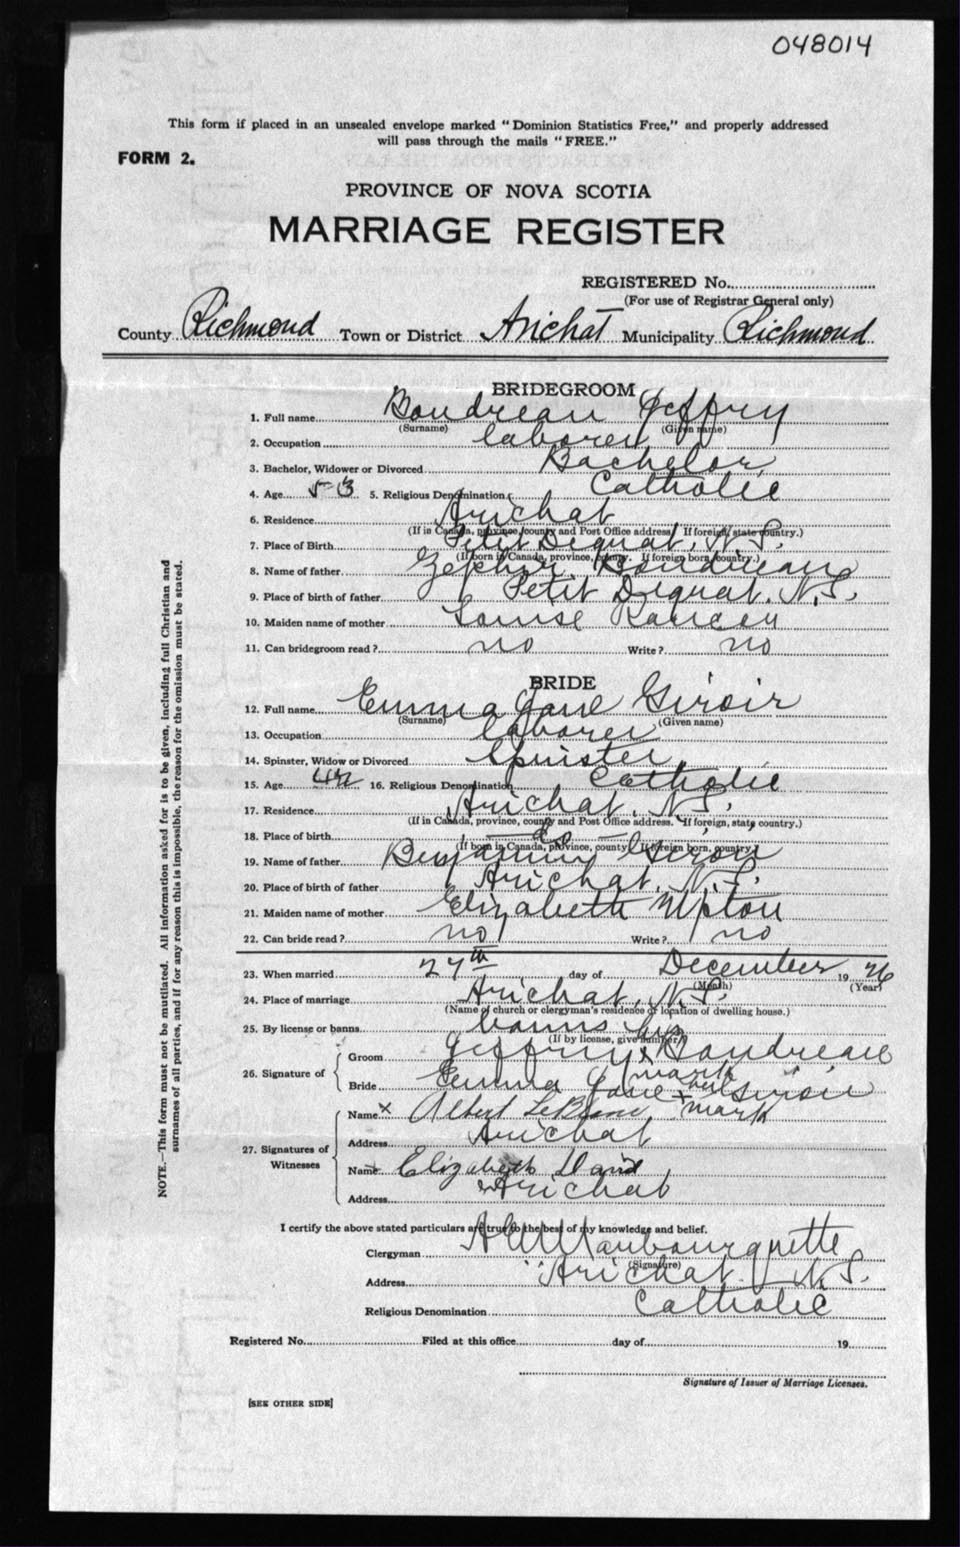 048014
This form if placed in an unsealed envelope marked "Dominion Statistics Free," and properly addressed
will pass through the mails "FREE."
FORM 2.
PROVINCE OF NOVA SCOTIA
MARRIAGE REGISTER
REGISTERED No.
(For use of Registrar General only)
County Richmond Town or District Arichat Municipality Richmond
BRIDEGROOM
1. Full name Boudreau Jeffry
(Surname) (Given name)
2. Occupation laborer
3. Bachelor, Widower or Divorced Bachelor
4. Age 53 5. Religious Denomination Catholic
6. Residence Arichat
(If in Canada, province, county and Post Office address. If foreign, state country.)
7. Place of Birth Petit Degrat, N.S.
(If born in Canada, province, county. If foreign born, country.)
8. Name of father Zephir Boudreau
9. Place of birth of father Petit Degrat, N.S.
10. Maiden name of mother Louise
11. Can bridegroom read? no Write? no
BRIDE
12. Full name Emma Jane Giroir
(Surname) (Given name)
13. Occupation laborer
14. Spinster, Widow or Divorced Spinster
15. Age 16. Religious Denomination Catholic
17. Residence Arichat, N.S.
(If in Canada, province, county and Post Office address. If foreign, state country.)
18. Place of birth — do —
(If born in Canada, province, county. If foreign born, country.)
19. Name of father Benjamin Giroir
20. Place of birth of father Arichat, N.S.
21. Maiden name of mother Elizabeth Upton
22. Can bride read? no Write? no
23. When married 27th day of December 1926
(Month) (Year)
24. Place of marriage Arichat, N.S.
(Name of church or clergyman's residence or location of dwelling house.)
25. By license or banns banns
(If by license, give number)
26. Signature of
Groom Jeffry his x mark Boudreau
Bride Emma Jane her + mark Giroir
27. Signatures of Witnesses
Name x Albert LeBlanc
Address Arichat
Name Elizabeth David
Address Arichat
I certify the above stated particulars are true to the best of my knowledge and belief.
Clergyman Manbourquette
(Signature)
Address Arichat N.S.
Religious Denomination Catholic
Registered No. Filed at this office day of 19
Signature of Issuer of Marriage Licenses.
[SEE OTHER SIDE]
NOTE.—This form must not be mutilated. All information asked for is to be given, including full Christian and
surnames of all parties, and if for any reason this is impossible, the reason for the omission must be stated.